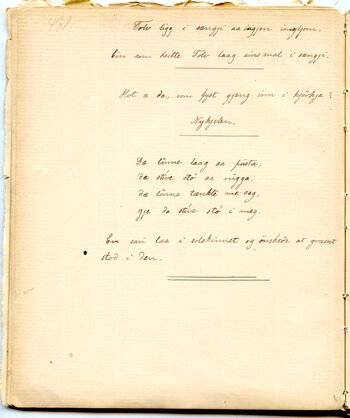 Tolv ligg i sængji aa ingjen ingljom.
Ein som heitte Tolv laag einsmal i sængji.
Hot æ da, som fyst gjeng inn i kjörkja?
Nykjelen.
Da linne laag aa pusta,
da stive sto aa rugga,
da linne tænkte me seg,
gje da stive sto i meg.
En sau laa i solskinnet og önskede at græsset
stod i den.